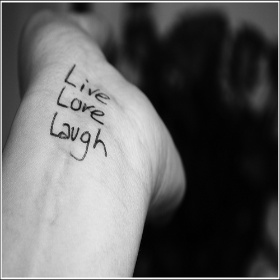 Live
Love
Laugh